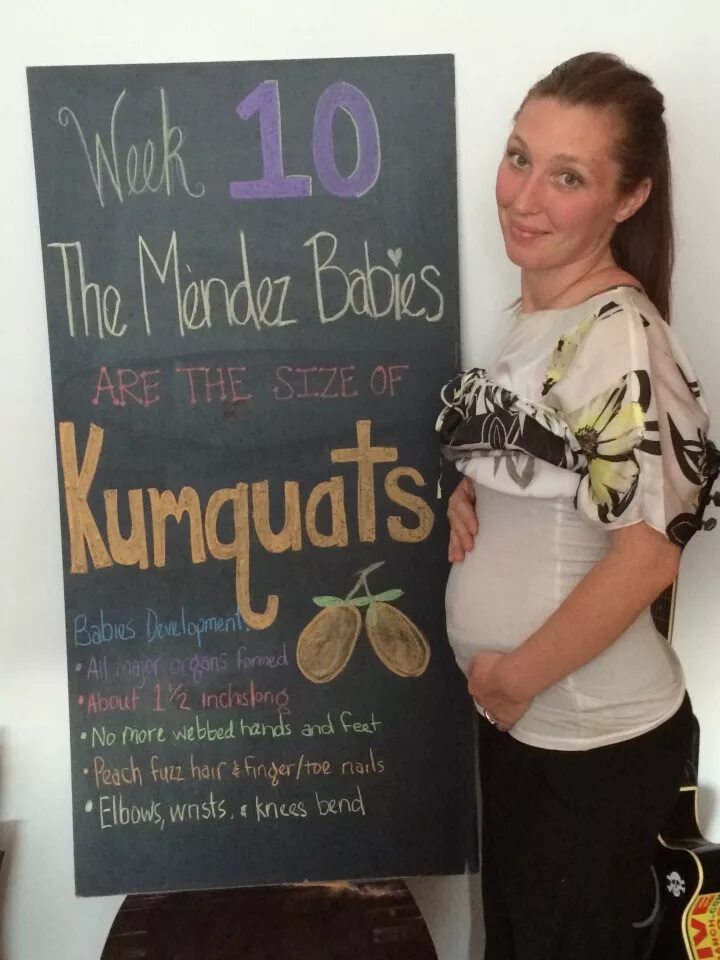 Week 10
The Méndez Babies
ARE THE SIZE OF
Kumquats
Babies Development:
• All major organs formed
• About 1 1/2 incheslong
• No more webbed hands and feet
• Peach fuzz hair & finger/toe nails
• Elbows, wrists, & knees bend
IVE